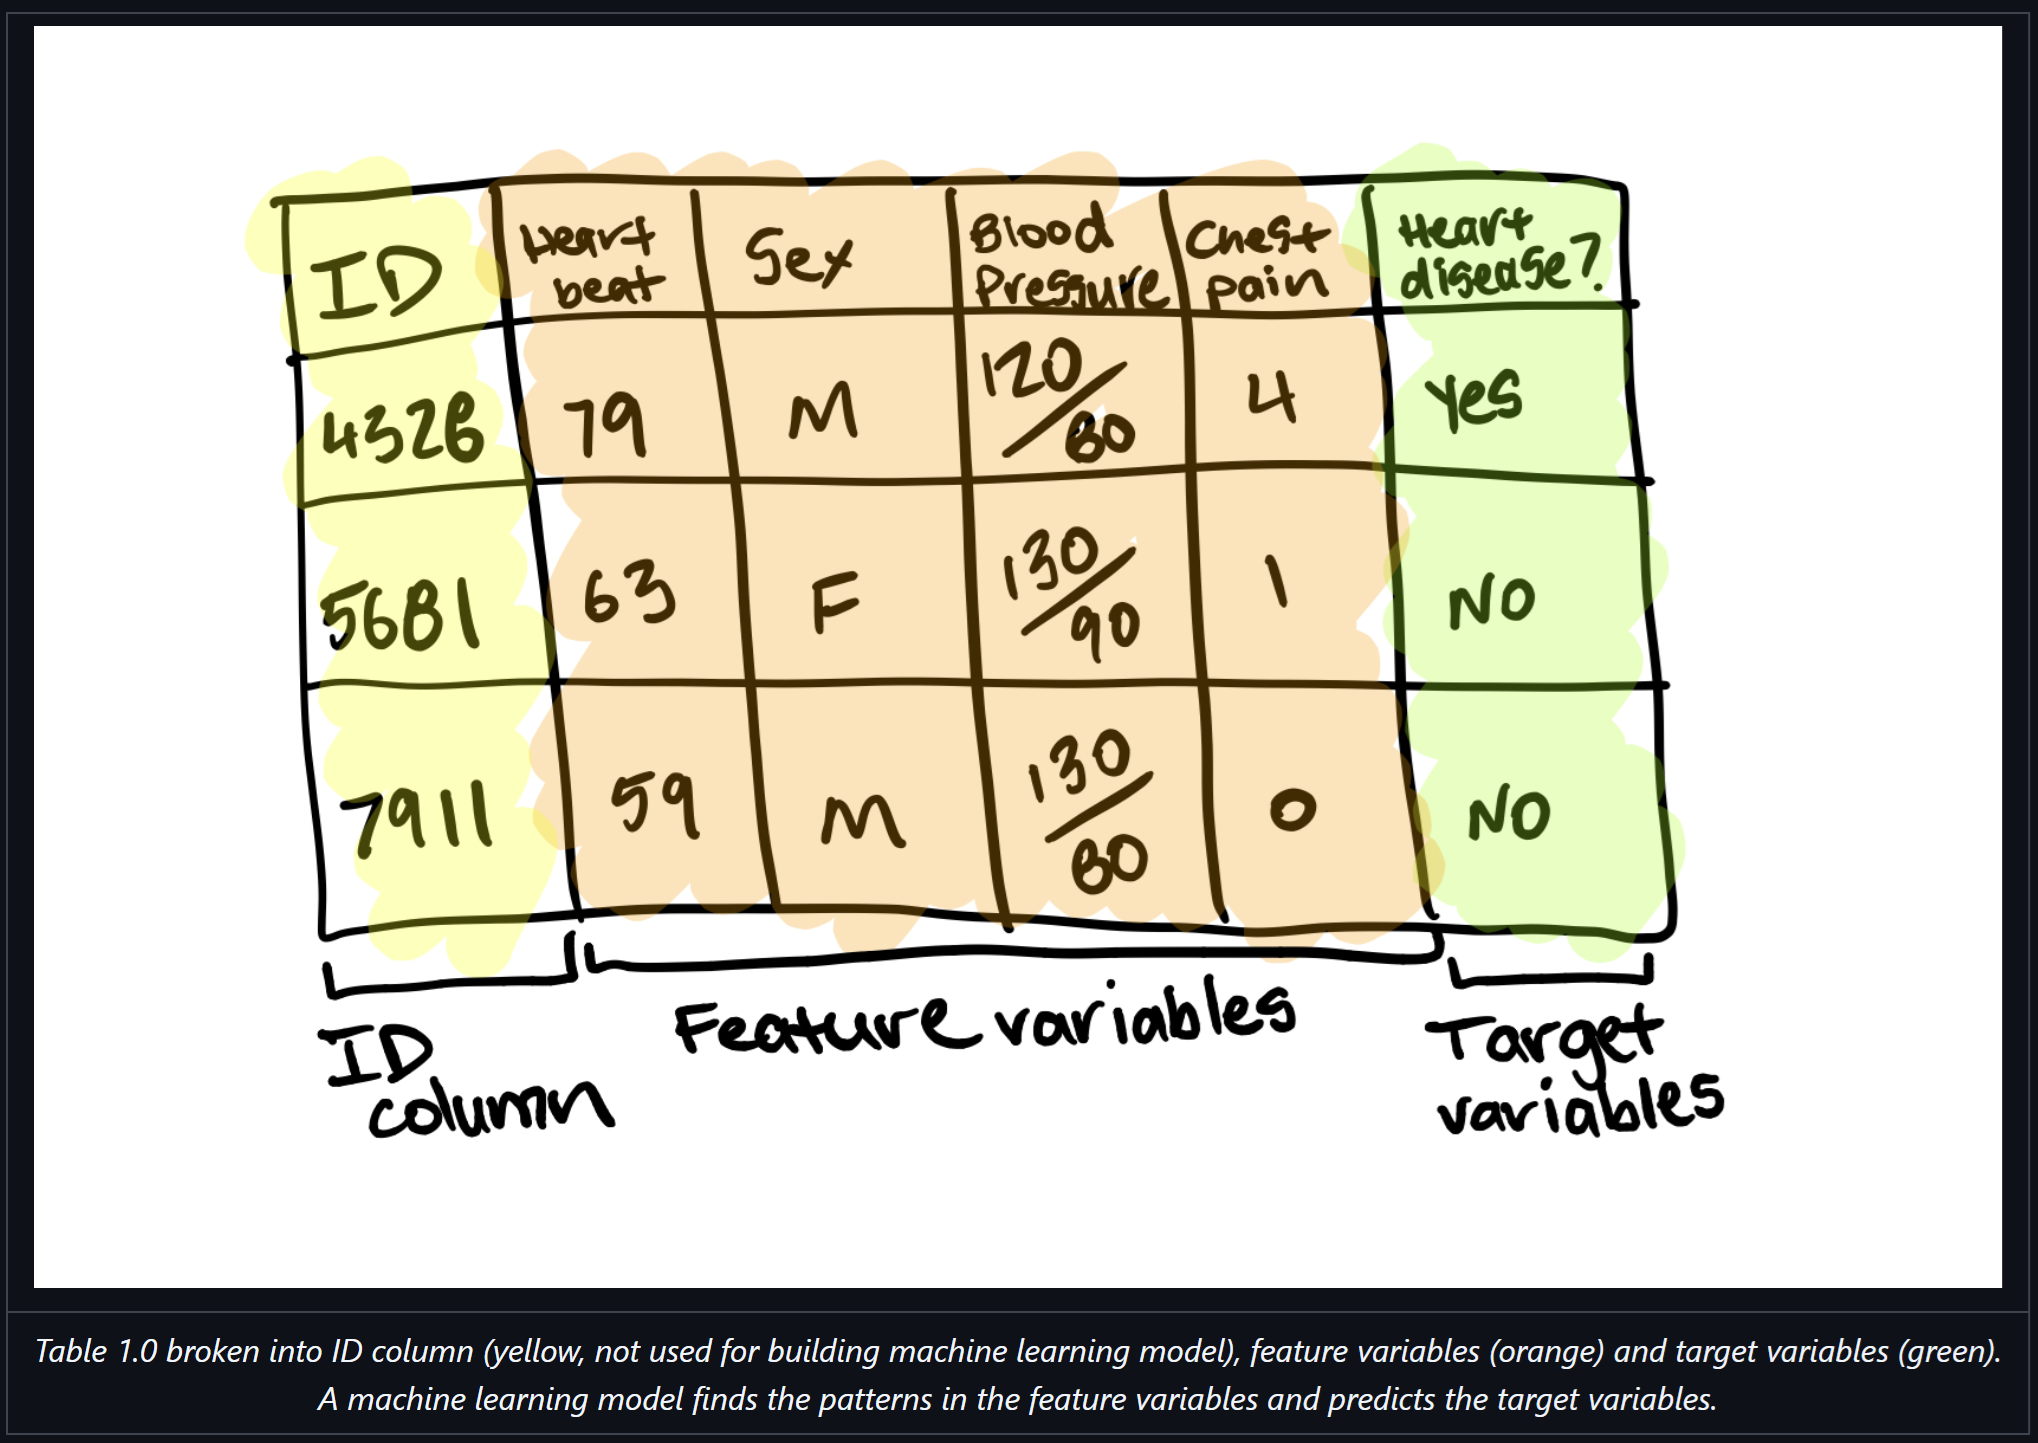 ID Heart beat Sex Blood Pressure Chest pain Heart disease?
4328 79 M 120/80 4 Yes
5681 63 F 130/90 1 NO
7911 59 M 130/80 0 NO
ID column Feature variables Target variables
Table 1.0 broken into ID column (yellow, not used for building machine learning model), feature variables (orange) and target variables (green).
A machine learning model finds the patterns in the feature variables and predicts the target variables.